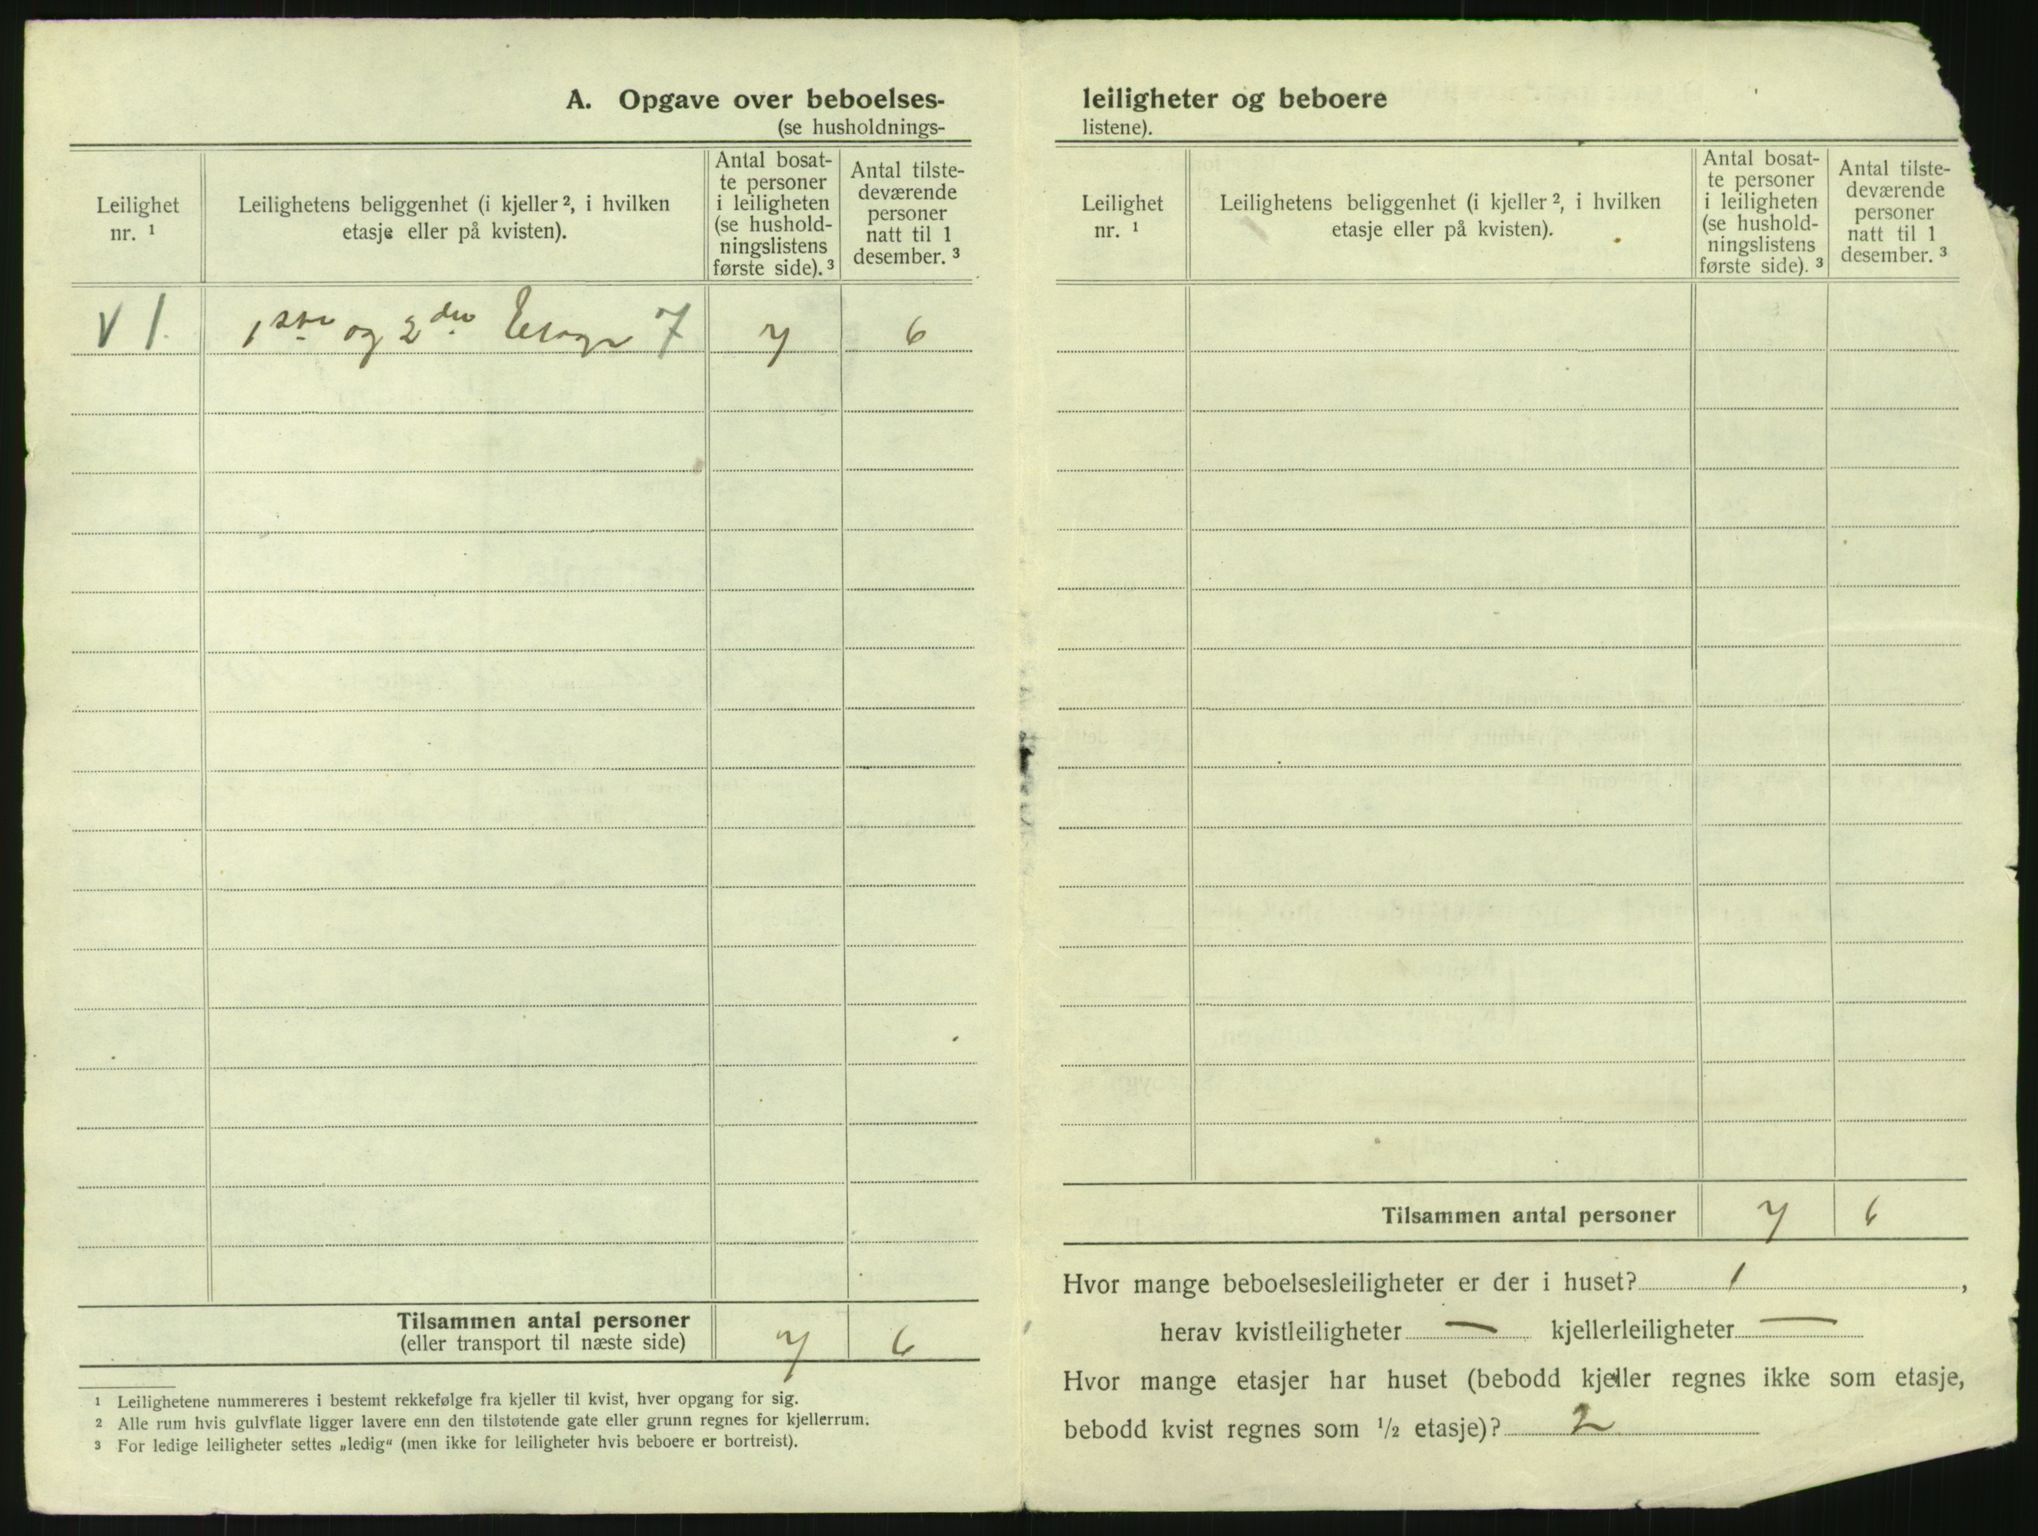 A. Opgave over beboelses-
(se husholdnings-
Leilighet nr. ¹
Leilighetens beliggenhet (i kjeller ², i hvilken etasje eller på kvisten).
Antal bosat-
te personer
i leiligheten
(se hushold-
ningslistens
første side). ³
Antal tilste-
deværende
personer
natt til 1
desember. ³
V 1. 1ste og 2den Etage 7 7 6
Tilsammen antal personer 7 6
(eller transport til næste side)
¹ Leilighetene nummereres i bestemt rekkefølge fra kjeller til kvist, hver opgang for sig.
² Alle rum hvis gulvflate ligger lavere enn den tilstøtende gate eller grunn regnes for kjellerrum.
³ For ledige leiligheter settes „ledig“ (men ikke for leiligheter hvis beboere er bortreist).
leiligheter og beboere
listene).
Leilighet nr. ¹
Leilighetens beliggenhet (i kjeller ², i hvilken etasje eller på kvisten).
Antal bosat-
te personer
i leiligheten
(se hushold-
ningslistens
første side). ³
Antal tilste-
deværende
personer
natt til 1
desember. ³
Tilsammen antal personer 7 6
Hvor mange beboelsesleiligheter er der i huset? 1 ,
herav kvistleiligheter — kjellerleiligheter —
Hvor mange etasjer har huset (bebodd kjeller regnes ikke som etasje,
bebodd kvist regnes som ½ etasje)? 2